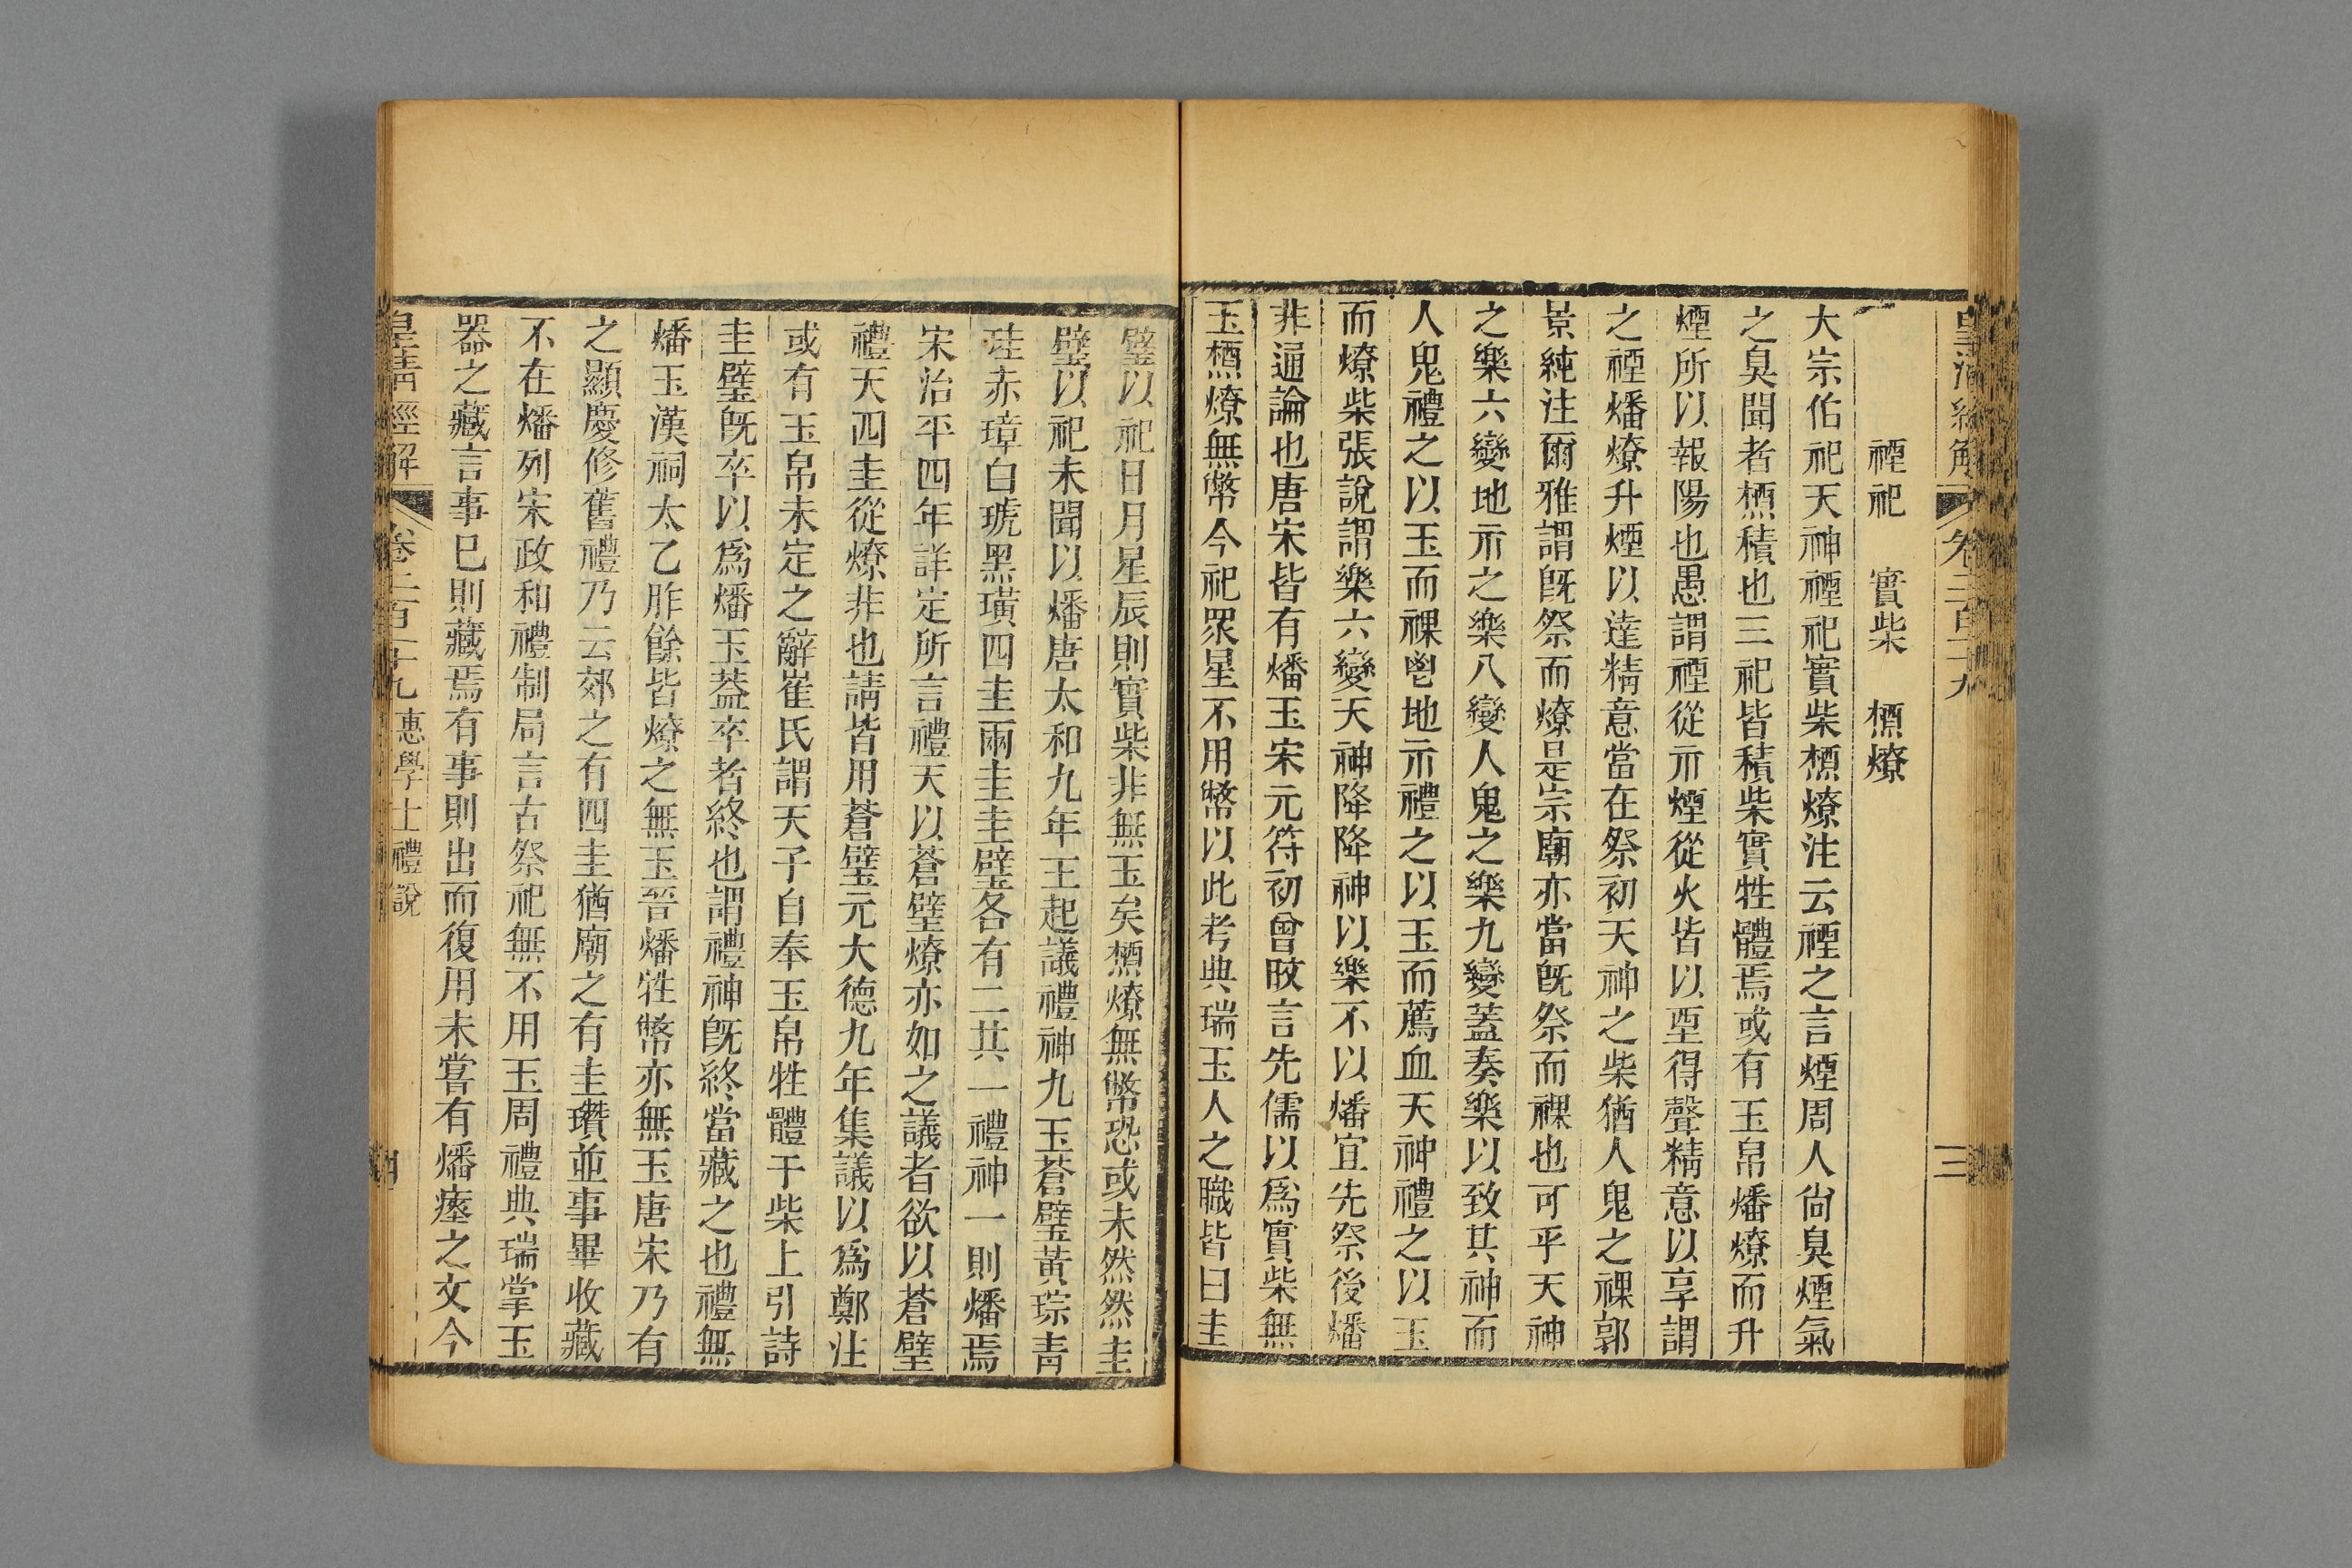 皇清經解 卷二百十九 三
禋祀 實柴 槱燎
大宗伯祀天神禋祀實柴槱燎注云禋之言煙周人尙臭煙氣
之臭聞者槱積也三祀皆積柴實牲體焉或有玉帛燔燎而升
煙所以報陽也愚謂禋從示煙從火皆以垔得聲精意以享謂
之禋燔燎升煙以達精意當在祭初天神之柴猶人鬼之祼郭
景純注爾雅謂旣祭而燎是宗廟亦當旣祭而祼也可乎天神
之樂六變地示之樂八變人鬼之樂九變蓋奏樂以致其神而
人鬼禮之以玉而祼鬯地示禮之以玉而薦血天神禮之以玉
而燎柴張說謂樂六變天神降降神以樂不以燔宜先祭後燔
非通論也唐宋皆有燔玉宋元符初曾旼言先儒以爲實柴無
玉槱燎無幣今祀眾星不用幣以此考典瑞玉人之職皆曰圭
璧以祀日月星辰則實柴非無玉矣槱燎無幣恐或未然然圭
璧以祀未聞以燔唐太和九年王起議禮神九玉蒼璧黃琮青
珪赤璋白琥黑璜四圭兩圭圭璧各有二其一禮神一則燔焉
宋治平四年詳定所言禮天以蒼璧燎亦如之議者欲以蒼璧
禮天四圭從燎非也請皆用蒼璧元大德九年集議以爲鄭注
或有玉帛未定之辭崔氏謂天子自奉玉帛牲體于柴上引詩
圭璧旣卒以爲燔玉蓋卒者終也謂禮神旣終當藏之也禮無
燔玉漢祠太乙胙餘皆燎之無玉晉燔牲幣亦無玉唐宋乃有
之顯慶修舊禮乃云郊之有四圭猶廟之有圭瓚並事畢收藏
不在燔列宋政和禮制局言古祭祀無不用玉周禮典瑞掌玉
器之藏言事已則藏焉有事則出而復用未嘗有燔瘞之文今
皇清經解 卷二百十九 惠學士禮說 四